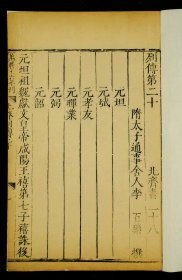 列傳第二十　北齊書二十八
隋太子通事舍人李　百藥　撰
元坦
元斌
元孝友
元暉業
元弼
元韶
元坦祖魏獻文皇帝咸陽王禧第七子禧誅後